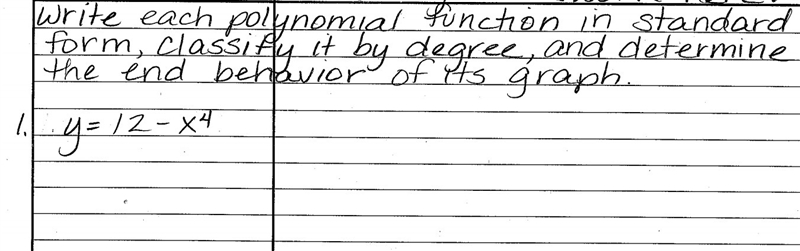 Write each polynomial function in standard
form, classify it by degree, and determine
the end behavior of its graph.
1. y = 12 - x⁴